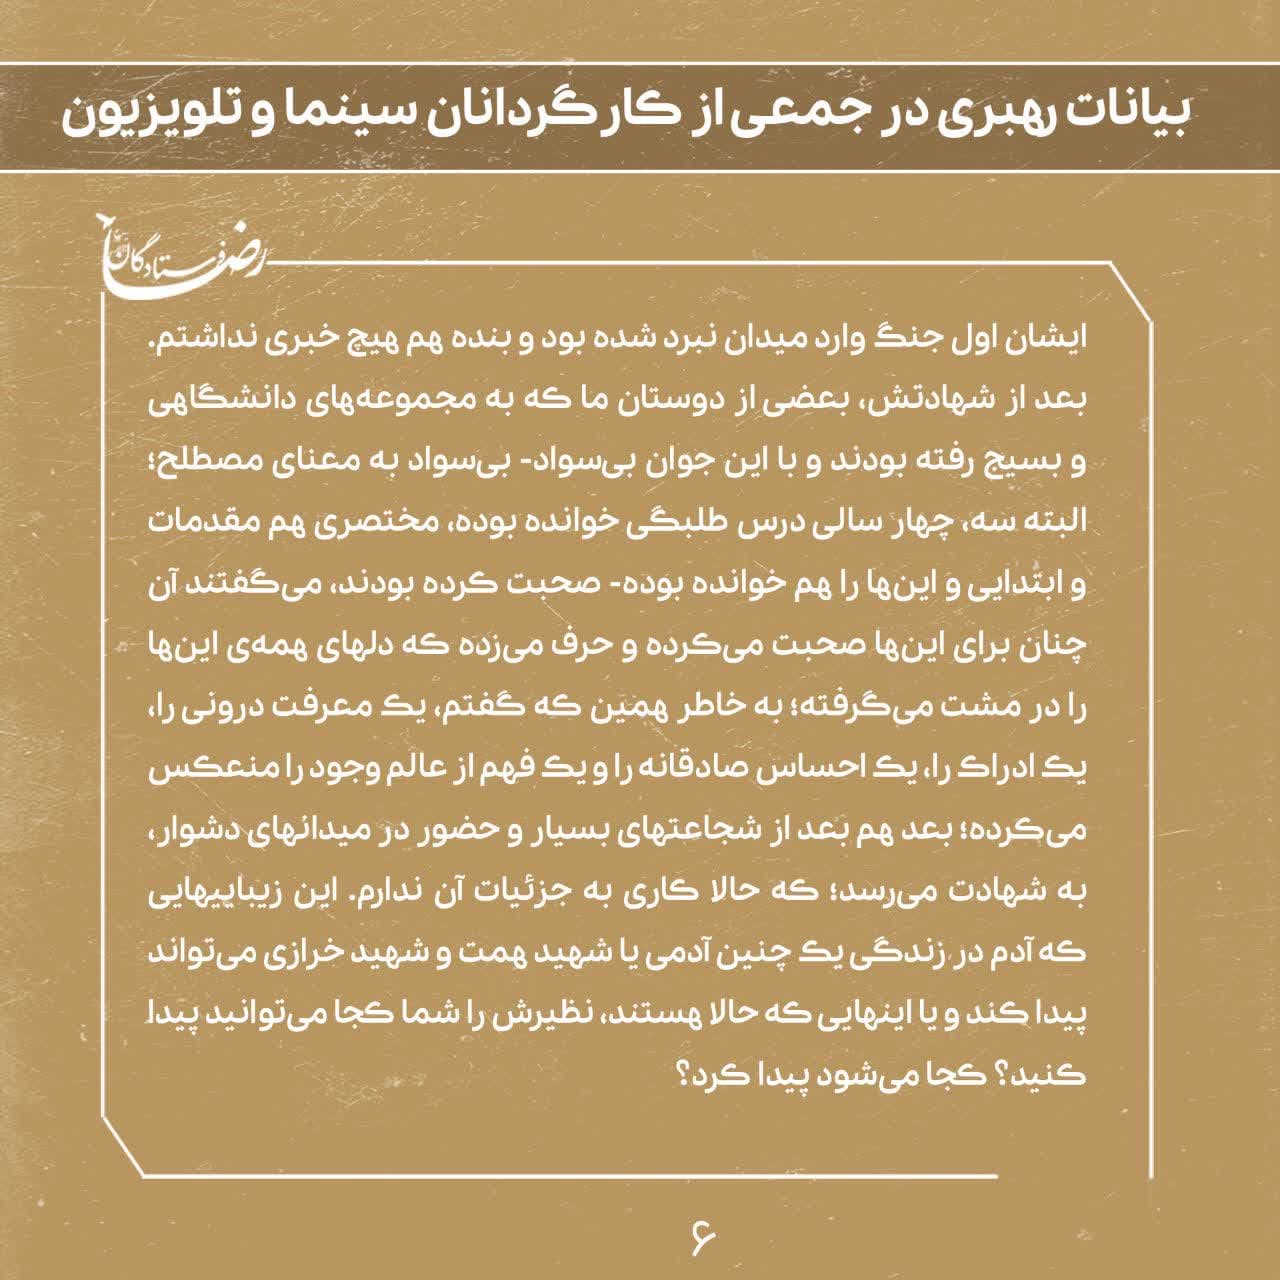 بیانات رهبری در جمعی از کارگردانان سینما و تلویزیون
فرستادگان رضا
ایشان اول جنگ وارد میدان نبرد شده بود و بنده هم هیچ خبری نداشتم.
بعد از شهادتش، بعضی از دوستان ما که به مجموعه‌های دانشگاهی
و بسیج رفته بودند و با این جوان بی‌سواد- بی‌سواد به معنای مصطلح؛
البته سه، چهار سالی درس طلبگی خوانده بوده، مختصری هم مقدمات
و ابتدایی و این‌ها را هم خوانده بوده- صحبت کرده بودند، می‌گفتند آن
چنان برای این‌ها صحبت می‌کرده و حرف می‌زده که دلهای همه‌ی این‌ها
را در مشت می‌گرفته؛ به خاطر همین که گفتم، یک معرفت درونی را،
یک ادراک را، یک احساس صادقانه را و یک فهم از عالم وجود را منعکس
می‌کرده؛ بعد هم بعد از شجاعتهای بسیار و حضور در میدانهای دشوار،
به شهادت می‌رسد؛ که حالا کاری به جزئیات آن ندارم. این زیباییهایی
که آدم در زندگی یک چنین آدمی یا شهید همت و شهید خرازی می‌تواند
پیدا کند و یا اینهایی که حالا هستند، نظیرش را شما کجا می‌توانید پیدا
کنید؟ کجا می‌شود پیدا کرد؟
۶